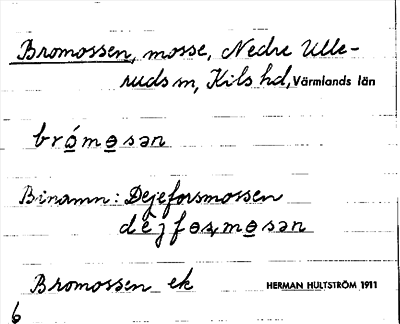 Bromossen, mosse, Nedre Ulle-
ruds sn, Kils hd, Värmlands län
brómosən
Binamn: Dejeforsmossen
dejfoʂmosən
Bromossen ek
HERMAN HULTSTRÖM 1911
6